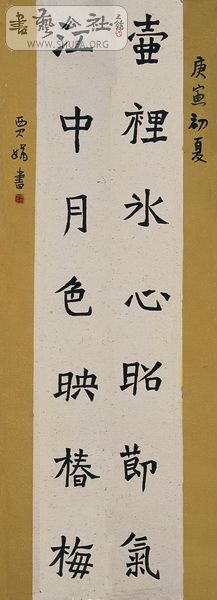 庚寅初夏
壺裡氷心昭節氣
江中月色映椿梅
贾娟書
書藝公社
WWW.SHUFA.ORG